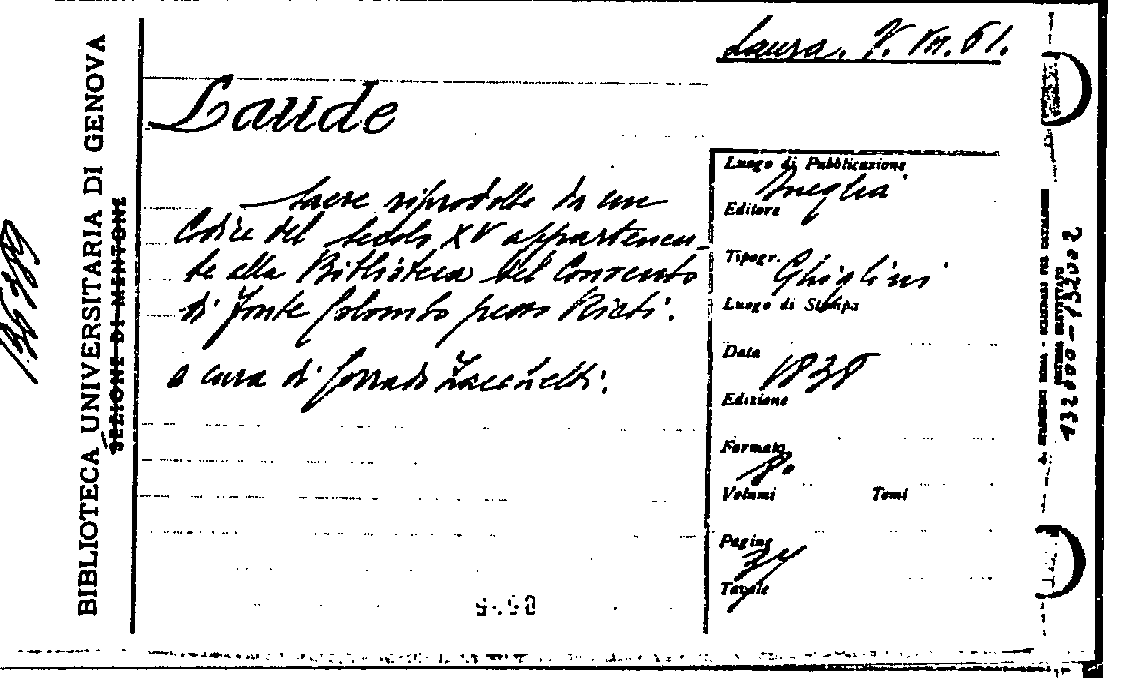 Laura. V. VII. 61.
Laude
sacre riprodotte da un
Codice del secolo XV appartenen-
te alla Biblioteca del Convento
di Fonte Colombo presso Rieti.
a cura di Corrado Zacchetti.
Luogo di Pubblicazione
Oneglia
Editore
Tipogr. Ghiglini
Luogo di Stampa
Data
1838
Edizione
Formato
8°
Volumi Tomi
Pagine
34
Tavole
BIBLIOTECA UNIVERSITARIA DI GENOVA
SEZIONE DI MENTONE
132000-132002